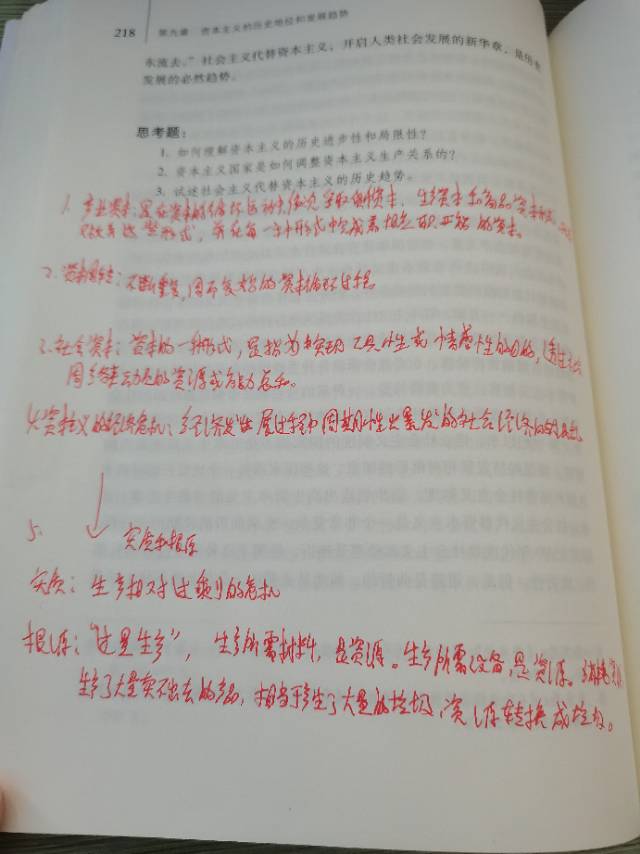 218 第九章 资本主义的历史地位和发展趋势
东流去。”社会主义代替资本主义，开启人类社会发展的新华章，是历史
发展的必然趋势。
思考题：
1. 如何理解资本主义的历史进步性和局限性？
2. 资本主义国家是如何调整资本主义生产关系的？
3. 试述社会主义代替资本主义的历史趋势。
1. 产业资本：是在资本的循环运动中依次采取货币资本、生产资本和商品资本形式，
放弃这些形式，并在每一种形式中完成着相应职能的资本。
2. 资本周转：不断重复，周而复始的资本循环过程
3. 社会资本：资本的一种形式，是指为实现工具性或情感性的目的，透过社会
网络来动员的资源或能力总和。
4. 资本主义的经济危机：经济发展过程中周期性爆发的社会经济的混乱
5. 实质和根源
实质：生产相对过剩的危机
根源：“过量生产”，生产所需材料，是资源。生产所需设备，是资源。消耗资源
生产了大量卖不出去的产品，相当于产生了大量的垃圾，资源转换成垃圾。